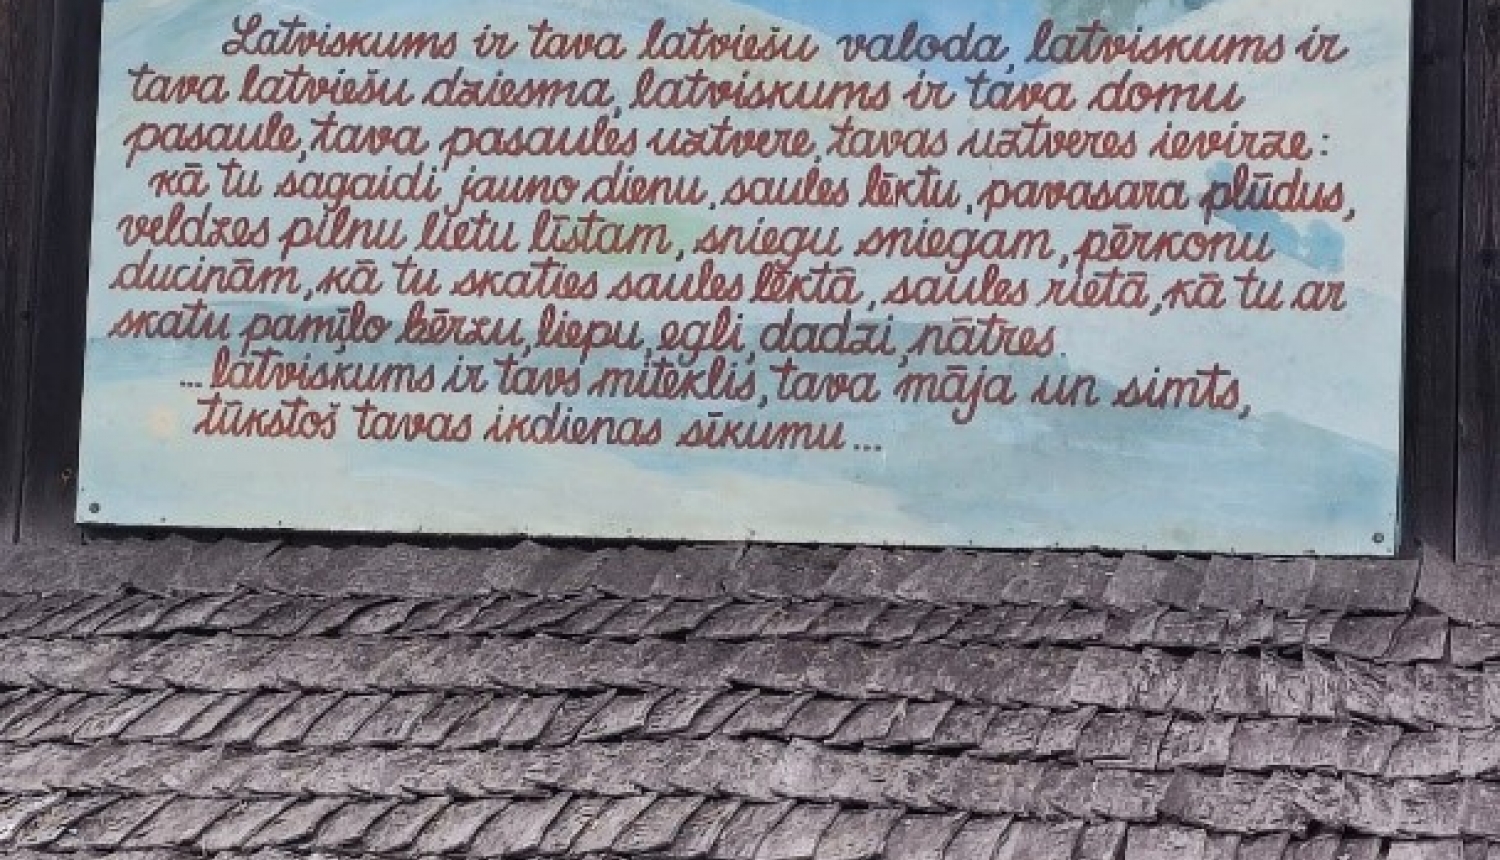 Latviskums ir tava latviešu valoda, latviskums ir
tava latviešu dziesma, latviskums ir tava domu
pasaule, tava pasaules uztvere, tavas uztveres ievirze:
kā tu sagaidi jauno dienu, saules lēktu, pavasara plūdus,
veldzes pilnu lietu līstam, sniegu sniegam, pērkonu
ducinām, kā tu skaties saules lēktā, saules rietā, kā tu ar
skatu pamīļo bērzu, liepu, egli, dadzi, nātres.
... latviskums ir tavs miteklis, tava māja un simts,
tūkstoš tavas ikdienas sīkumu ...